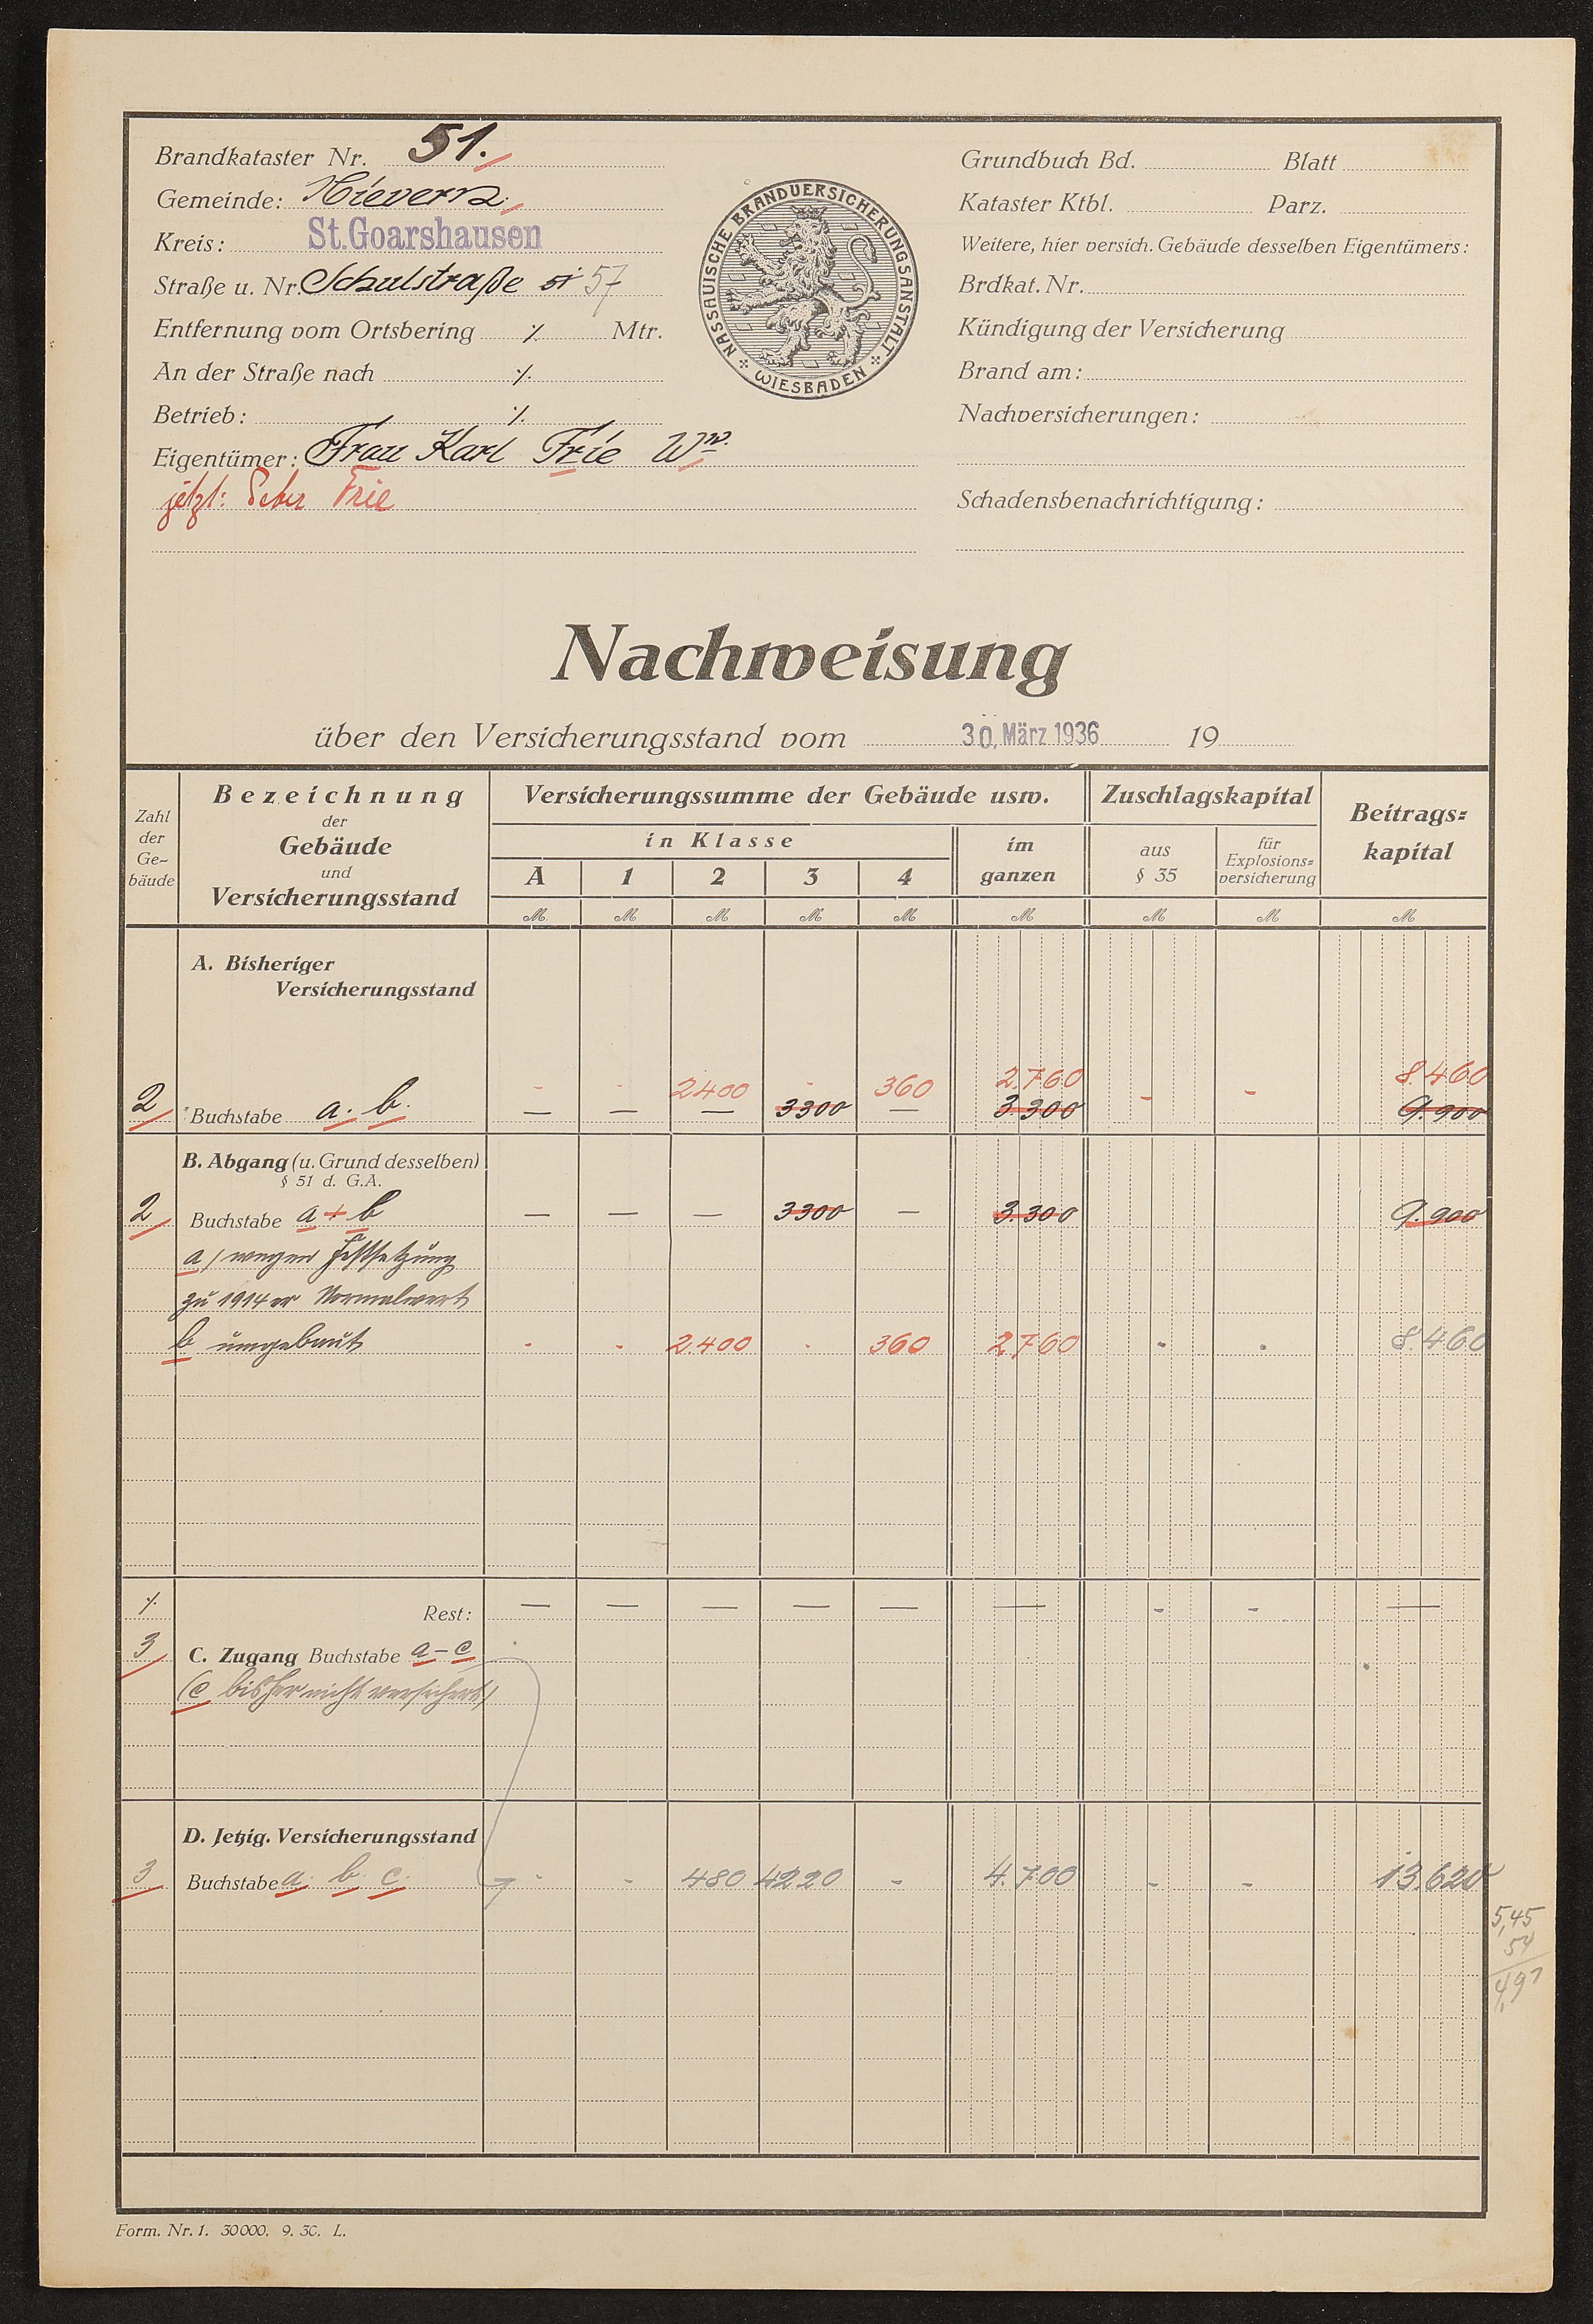 Brandkataster Nr. 51.
Gemeinde: Nievern
Kreis: St. Goarshausen
Straße u. Nr. Schulstraße 51 57
Entfernung vom Ortsbering ./. Mtr.
An der Straße nach ./.
Betrieb: ./.
Eigentümer: Frau Karl Frie Ww.
jetzt: Peter Frie
NASSAUISCHE BRANDVERSICHERUNGSANSTALT
WIESBADEN
Grundbuch Bd. Blatt
Kataster Ktbl. Parz.
Weitere, hier versich. Gebäude desselben Eigentümers:
Brdkat. Nr.
Kündigung der Versicherung
Brand am:
Nachversicherungen:
Schadensbenachrichtigung:
Nachweisung
über den Versicherungsstand vom 30. März 1936 19
Zahl der Ge-bäude
Bezeichnung der Gebäude und Versicherungsstand
Versicherungssumme der Gebäude usw.
in Klasse
A 1 2 3 4
im ganzen
Zuschlagskapital
aus § 35
für Explosions=versicherung
Beitrags=kapital
M M M M M M M M M
A. Bisheriger
Versicherungsstand
- - 2400 - 360 2.760 - - 8.460
2 Buchstabe a. b. — — — 3300 — 3.300 9.900
B. Abgang (u. Grund desselben)
§ 51 d. G.A.
2 Buchstabe a + b — — — 3300 — 3.300 9.900
a) wegen Festsetzung
zu 1914er Normalwert
b umgebaut - - 2.400 - 360 2760 - - 8.460
./. Rest: — — — — — — - - —
3 C. Zugang Buchstabe a - c
(c bisher nicht versichert)
D. Jetzig. Versicherungsstand
3 Buchstabe a. b. c. - - 480 4220 - 4.700 - - 13.620
5,45
54
4,91
Form. Nr. 1. 30000. 9. 30. L.